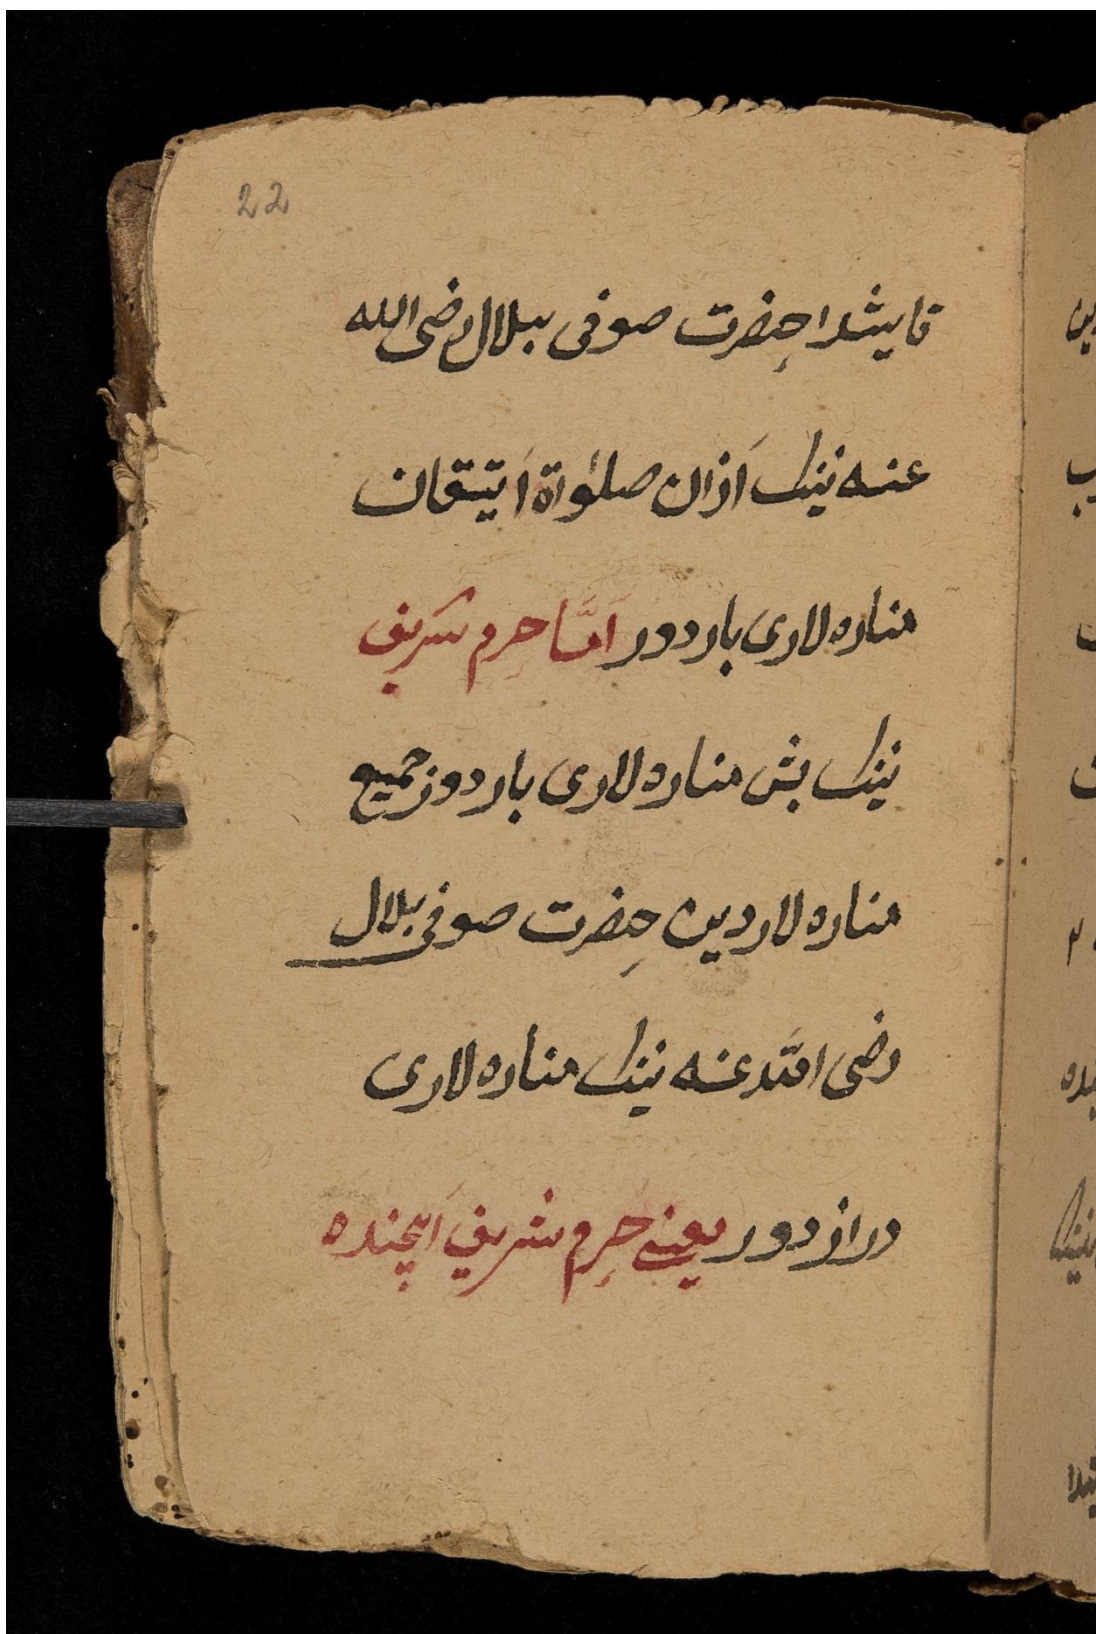 22
قايشدا حِضرت صوفى بيلال رضى الله
عنه نينك اَذان صلوٰاة اَيتيقان
مناره لارى بار دور اَمَّا حِرم شريف
نينك بش مناره لارى بار دور جميع
مناره لاردين حِضرت صوفى بلال
رضى الله عنه نينك مناره لارى
دراز دور يعنے حِرم شريف اَيچنده